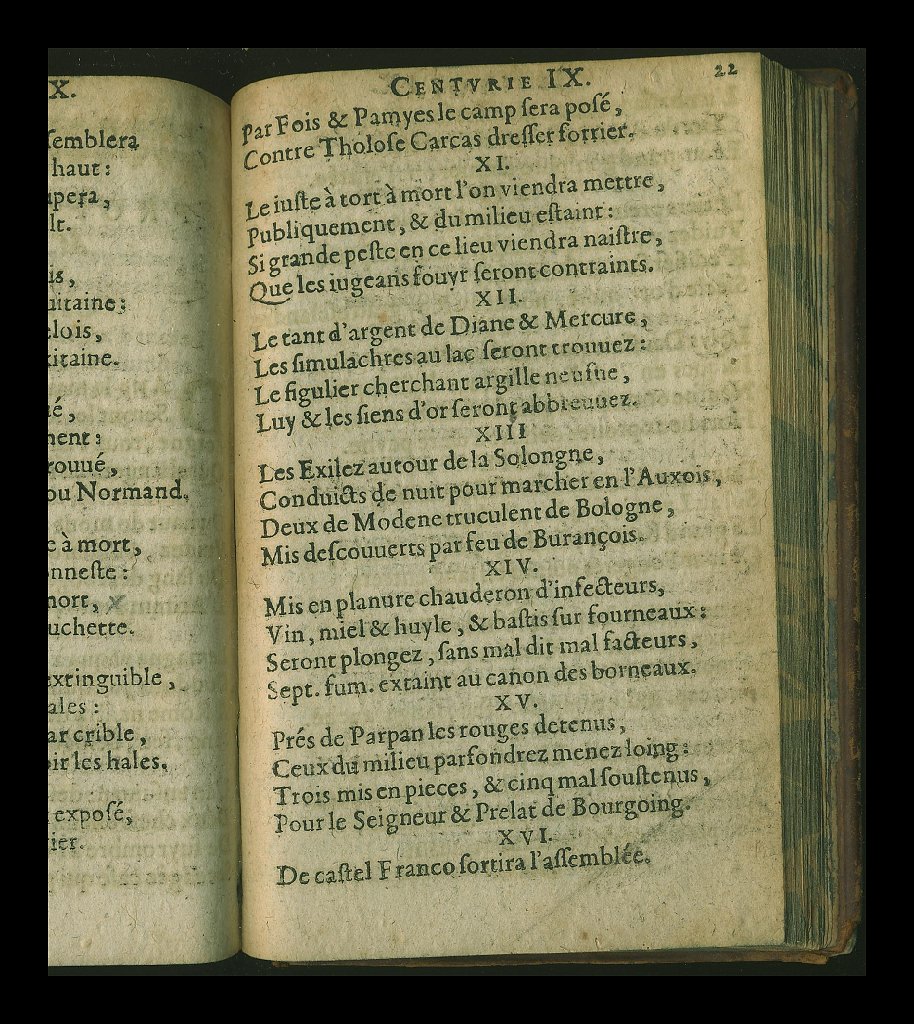 X.
ſemblera
haut:
upera,
lt.
us,
uitaine:
lois,
xitaine.
é,
ment:
rouué,
ou Normand.
e à mort,
nneſte:
mort,
uchette.
extinguible,
ales:
ar crible,
oir les hales.
expoſé,
ier.
CENTVRIE IX. 22
Par Fois & Pamyes le camp ſera poſé,
Contre Tholoſe Carcas dreſſer forrier.
XI.
Le iuſte à tort à mort l'on viendra mettre,
Publiquement, & du milieu eſtaint:
Si grande peſte en ce lieu viendra naiſtre,
Que les iugeans fouyr ſeront contraints.
XII.
Le tant d'argent de Diane & Mercure,
Les ſimulachres au lac ſeront trouuez:
Le figulier cherchant argille neufue,
Luy & les ſiens d'or ſeront abbreuuez.
XIII
Les Exilez autour de la Solongne,
Conduicts de nuit pour marcher en l'Auxois,
Deux de Modene truculent de Bologne,
Mis deſcouuerts par feu de Burançois.
XIV.
Mis en planure chauderon d'infecteurs,
Vin, miel & huyle, & baſtis ſur fourneaux:
Seront plongez, ſans mal dit mal facteurs,
Sept. fum. extaint au canon des borneaux.
XV.
Prés de Parpan les rouges detenus,
Ceux du milieu parfondrez menez loing:
Trois mis en pieces, & cinq mal ſouſtenus,
Pour le Seigneur & Prelat de Bourgoing.
XVI.
De caſtel Franco ſortira l'aſſemblée.